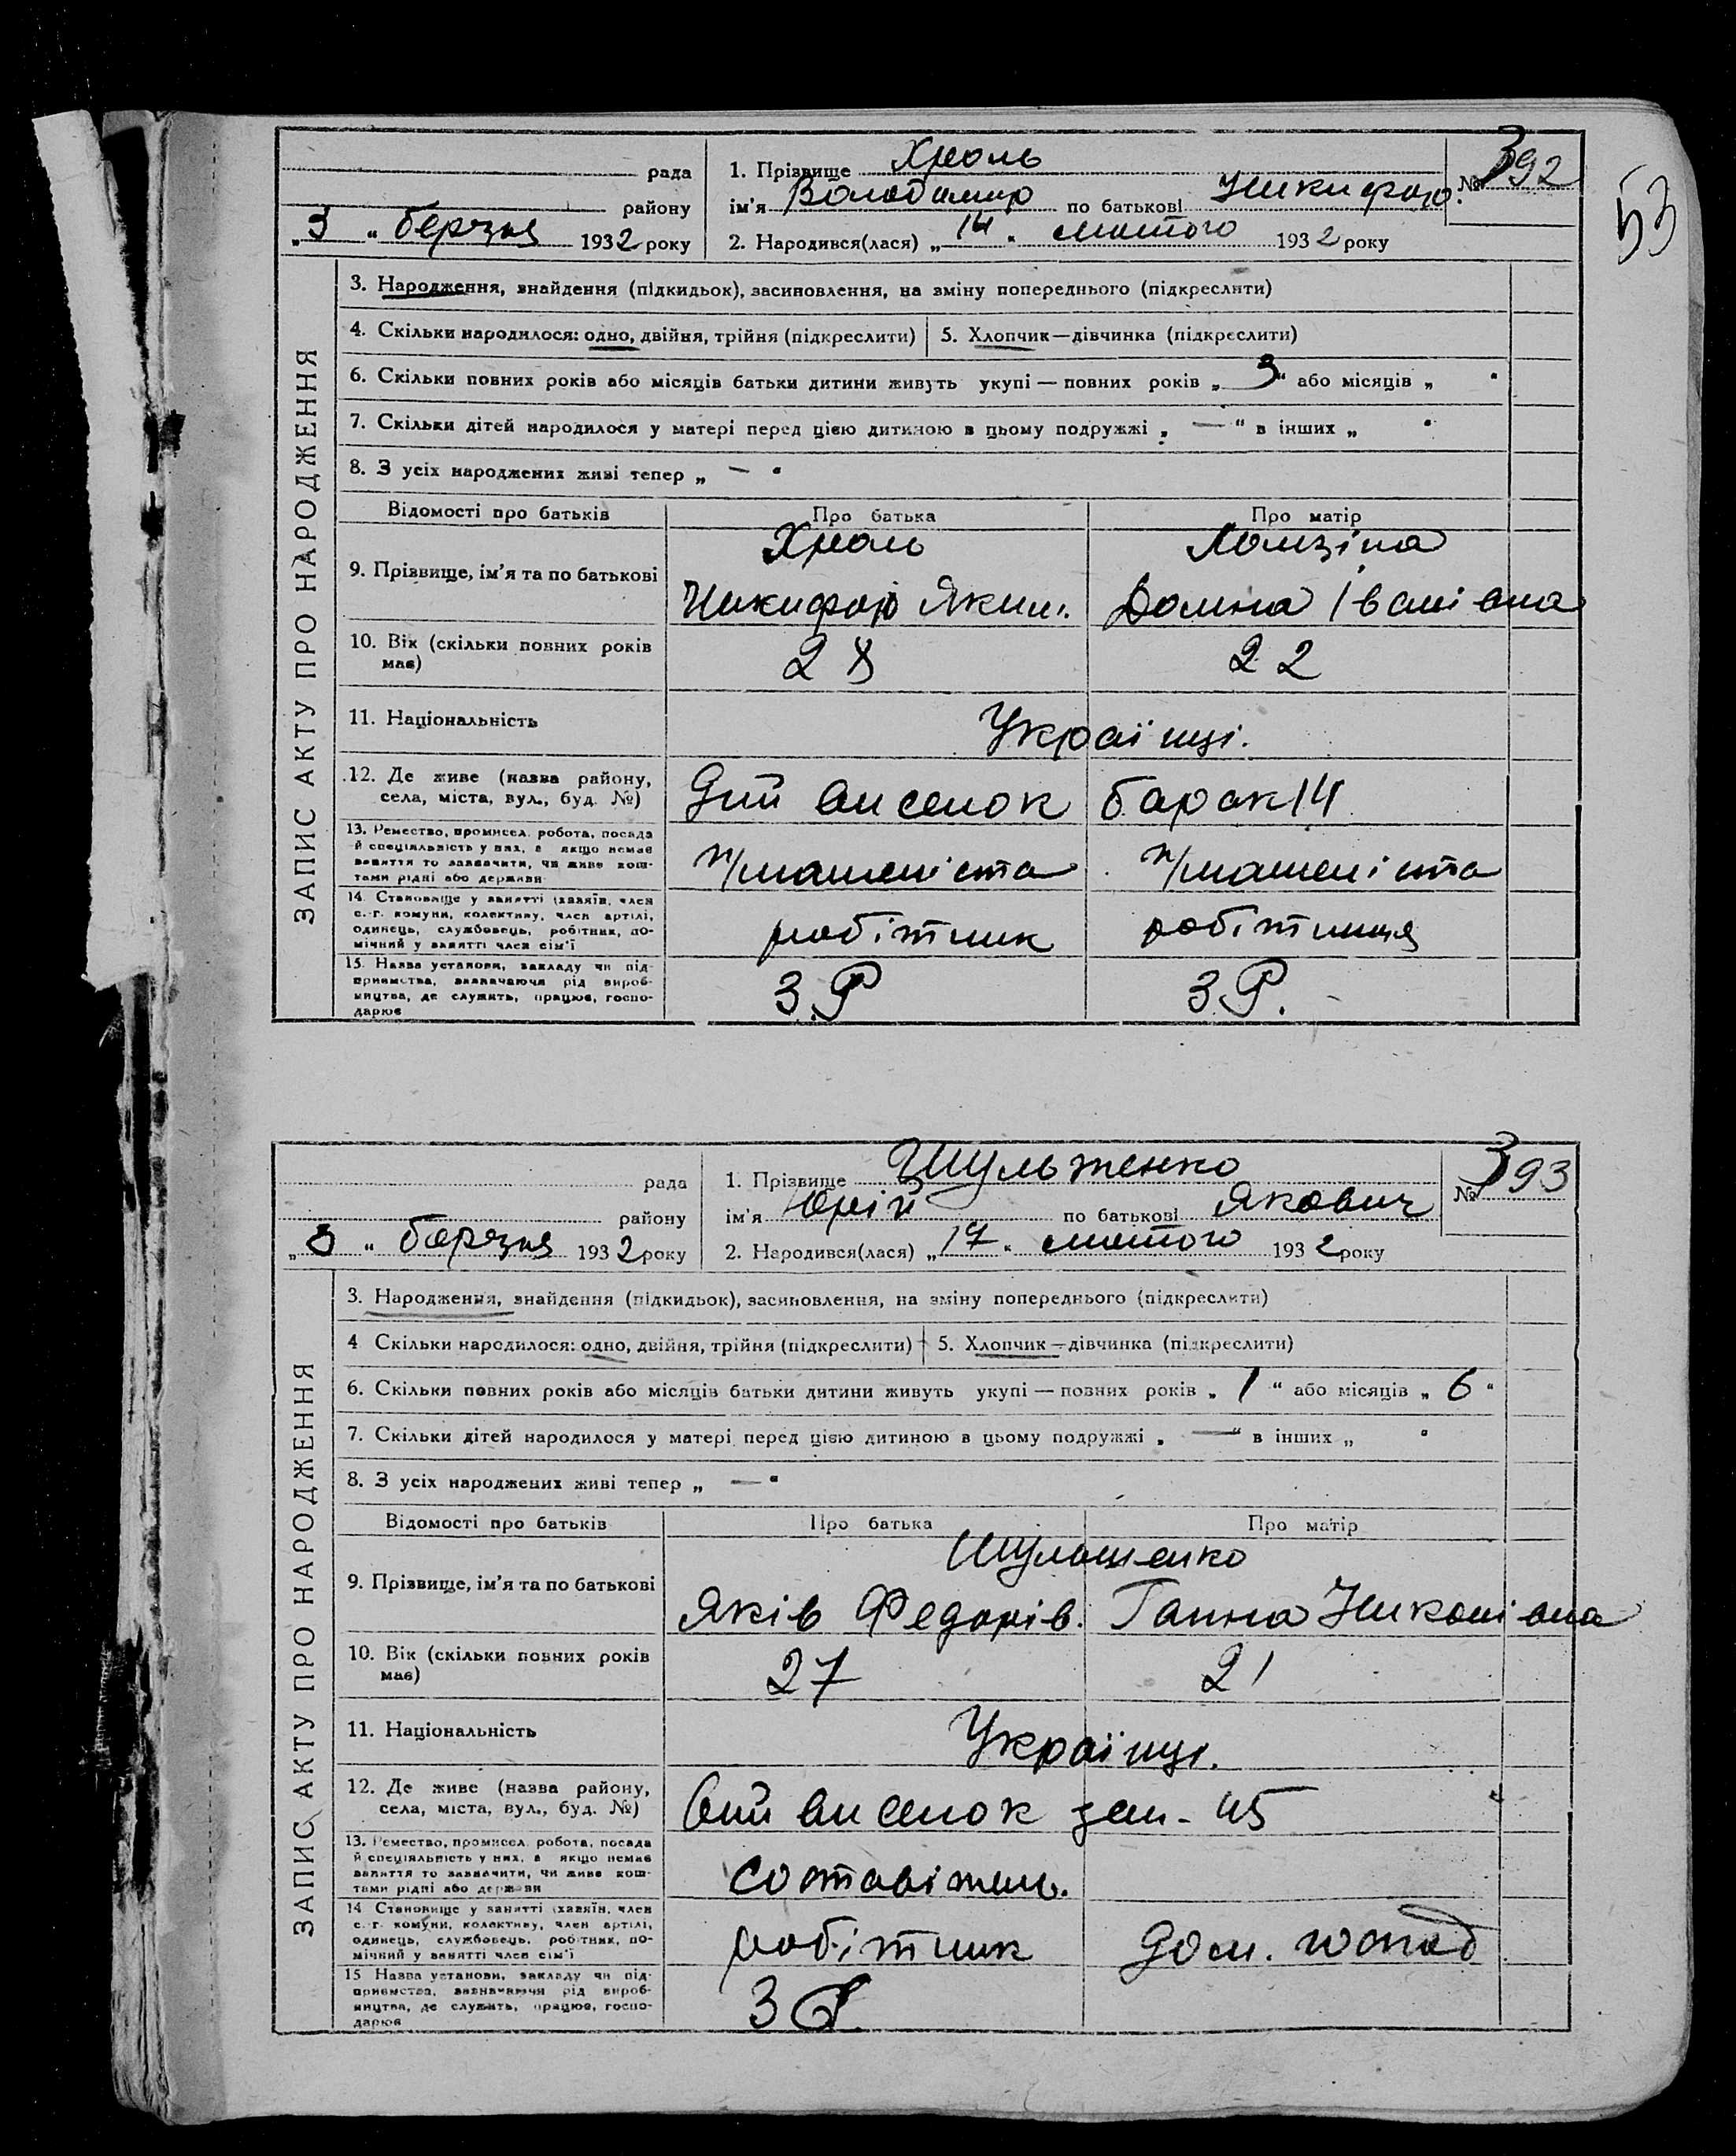 53
рада
району
„3“ березня 1932 року
1. Прізвище Хроль
ім'я Володимир по батькові Никифор.
2. Народився(лася) „14“ лютого 1932 року
№ 392
ЗАПИС АКТУ ПРО НАРОДЖЕННЯ
3. Народження, знайдення (підкидьок), засиновлення, на зміну попереднього (підкреслити)
4. Скільки народилося: одно, двійня, трійня (підкреслити)
5. Хлопчик—дівчинка (підкреслити)
6. Скільки повних років або місяців батьки дитини живуть укупі — повних років „3“ або місяців „ “
7. Скільки дітей народилося у матері перед цією дитиною в цьому подружжі „—“ в інших „ “
8. З усіх народжених живі тепер „—“
Відомості про батьків
Про батька
Про матір
9. Прізвище, ім'я та по батькові
Хроль
Никифор Яким.
Домна Іванівна
10. Вік (скільки повних років
має)
28
22
11. Національність
Українці.
12. Де живе (назва району,
села, міста, вул., буд. №)
9ий виселок барак 14
13. Ремество, промисел, робота, посада
й спеціяльність у них, а якщо немає
заняття то зазначити, чи живе кош-
тами рідні або держави
п/машеніста
п/машеніста
14. Становище у занятті (хазяїн, член
с.-г. комуни, колективу, член артілі,
одинець, службовець, робітник, по-
мічний у занятті член сім'ї
робітник
робітниця
15. Назва установи, закладу чи під-
приємства, зазначаючи рід вироб-
ництва, де служить, працює, госпо-
дарює
З.Р
З.Р.
рада
району
„3“ березня 1932 року
1. Прізвище Шульженко
ім'я Юрій по батькові Якович
2. Народився(лася) „17“ лютого 1932 року
№ 393
ЗАПИС АКТУ ПРО НАРОДЖЕННЯ
3. Народження, знайдення (підкидьок), засиновлення, на зміну попереднього (підкреслити)
4 Скільки народилося: одно, двійня, трійня (підкреслити)
5. Хлопчик—дівчинка (підкреслити)
6. Скільки повних років або місяців батьки дитини живуть укупі — повних років „1“ або місяців „6“
7. Скільки дітей народилося у матері перед цією дитиною в цьому подружжі „—“ в інших „ “
8. З усіх народжених живі тепер „—“
Відомості про батьків
Про батька
Про матір
9. Прізвище, ім'я та по батькові
Яків Федорів.
Ганна Никонівна
10. Вік (скільки повних років
має)
27
21
11. Національність
Українці.
12. Де живе (назва району,
села, міста, вул., буд. №)
6ий виселок зем-45
13. Ремество, промисел, робота, посада
й спеціяльність у них, а якщо немає
заняття то зазначити, чи живе кош-
тами рідні або держави
составітель.
14 Становище у занятті (хазяїн, член
с.-г. комуни, колективу, член артілі,
одинець, службовець, робітник, по-
мічний у занятті член сім'ї
робітник
дом. господ
15 Назва установи, закладу чи під-
приємства, зазначаючи рід вироб-
ництва, де служить, працює, госпо-
дарює
З Р.